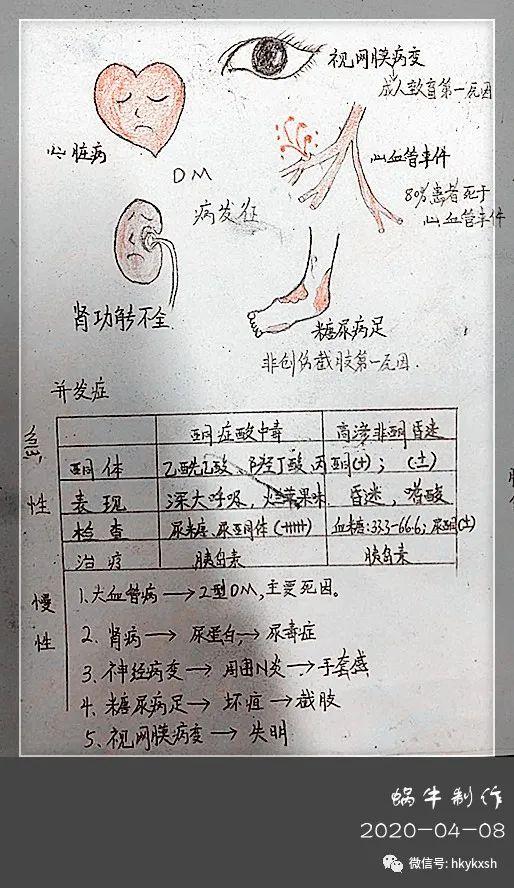 视网膜病变
成人致盲第一元因
心脏病
DM
病发症
心血管事件
80%患者死于
心血管事件
肾功能不全
糖尿病足
非创伤截肢第一元因.
并发症
急性
酮症酸中毒 高渗非酮昏迷
酮体 乙酰乙酸、β羟丁酸、丙酮(+); (±)
表现 深大呼吸，烂苹果味 昏迷，嗜酸
检查 尿糖、尿酮体(++++) 血糖:33.3-66.6; 尿酮(±)
治疗 胰岛素 胰岛素
慢性
1.大血管病→2型DM,主要死因。
2.肾病→尿蛋白→尿毒症
3.神经病变→周围N炎→手套感
4.糖尿病足→坏疽→截肢
5.视网膜病变→失明
蜗牛制作
2020-04-08
微信号: hkykxsh